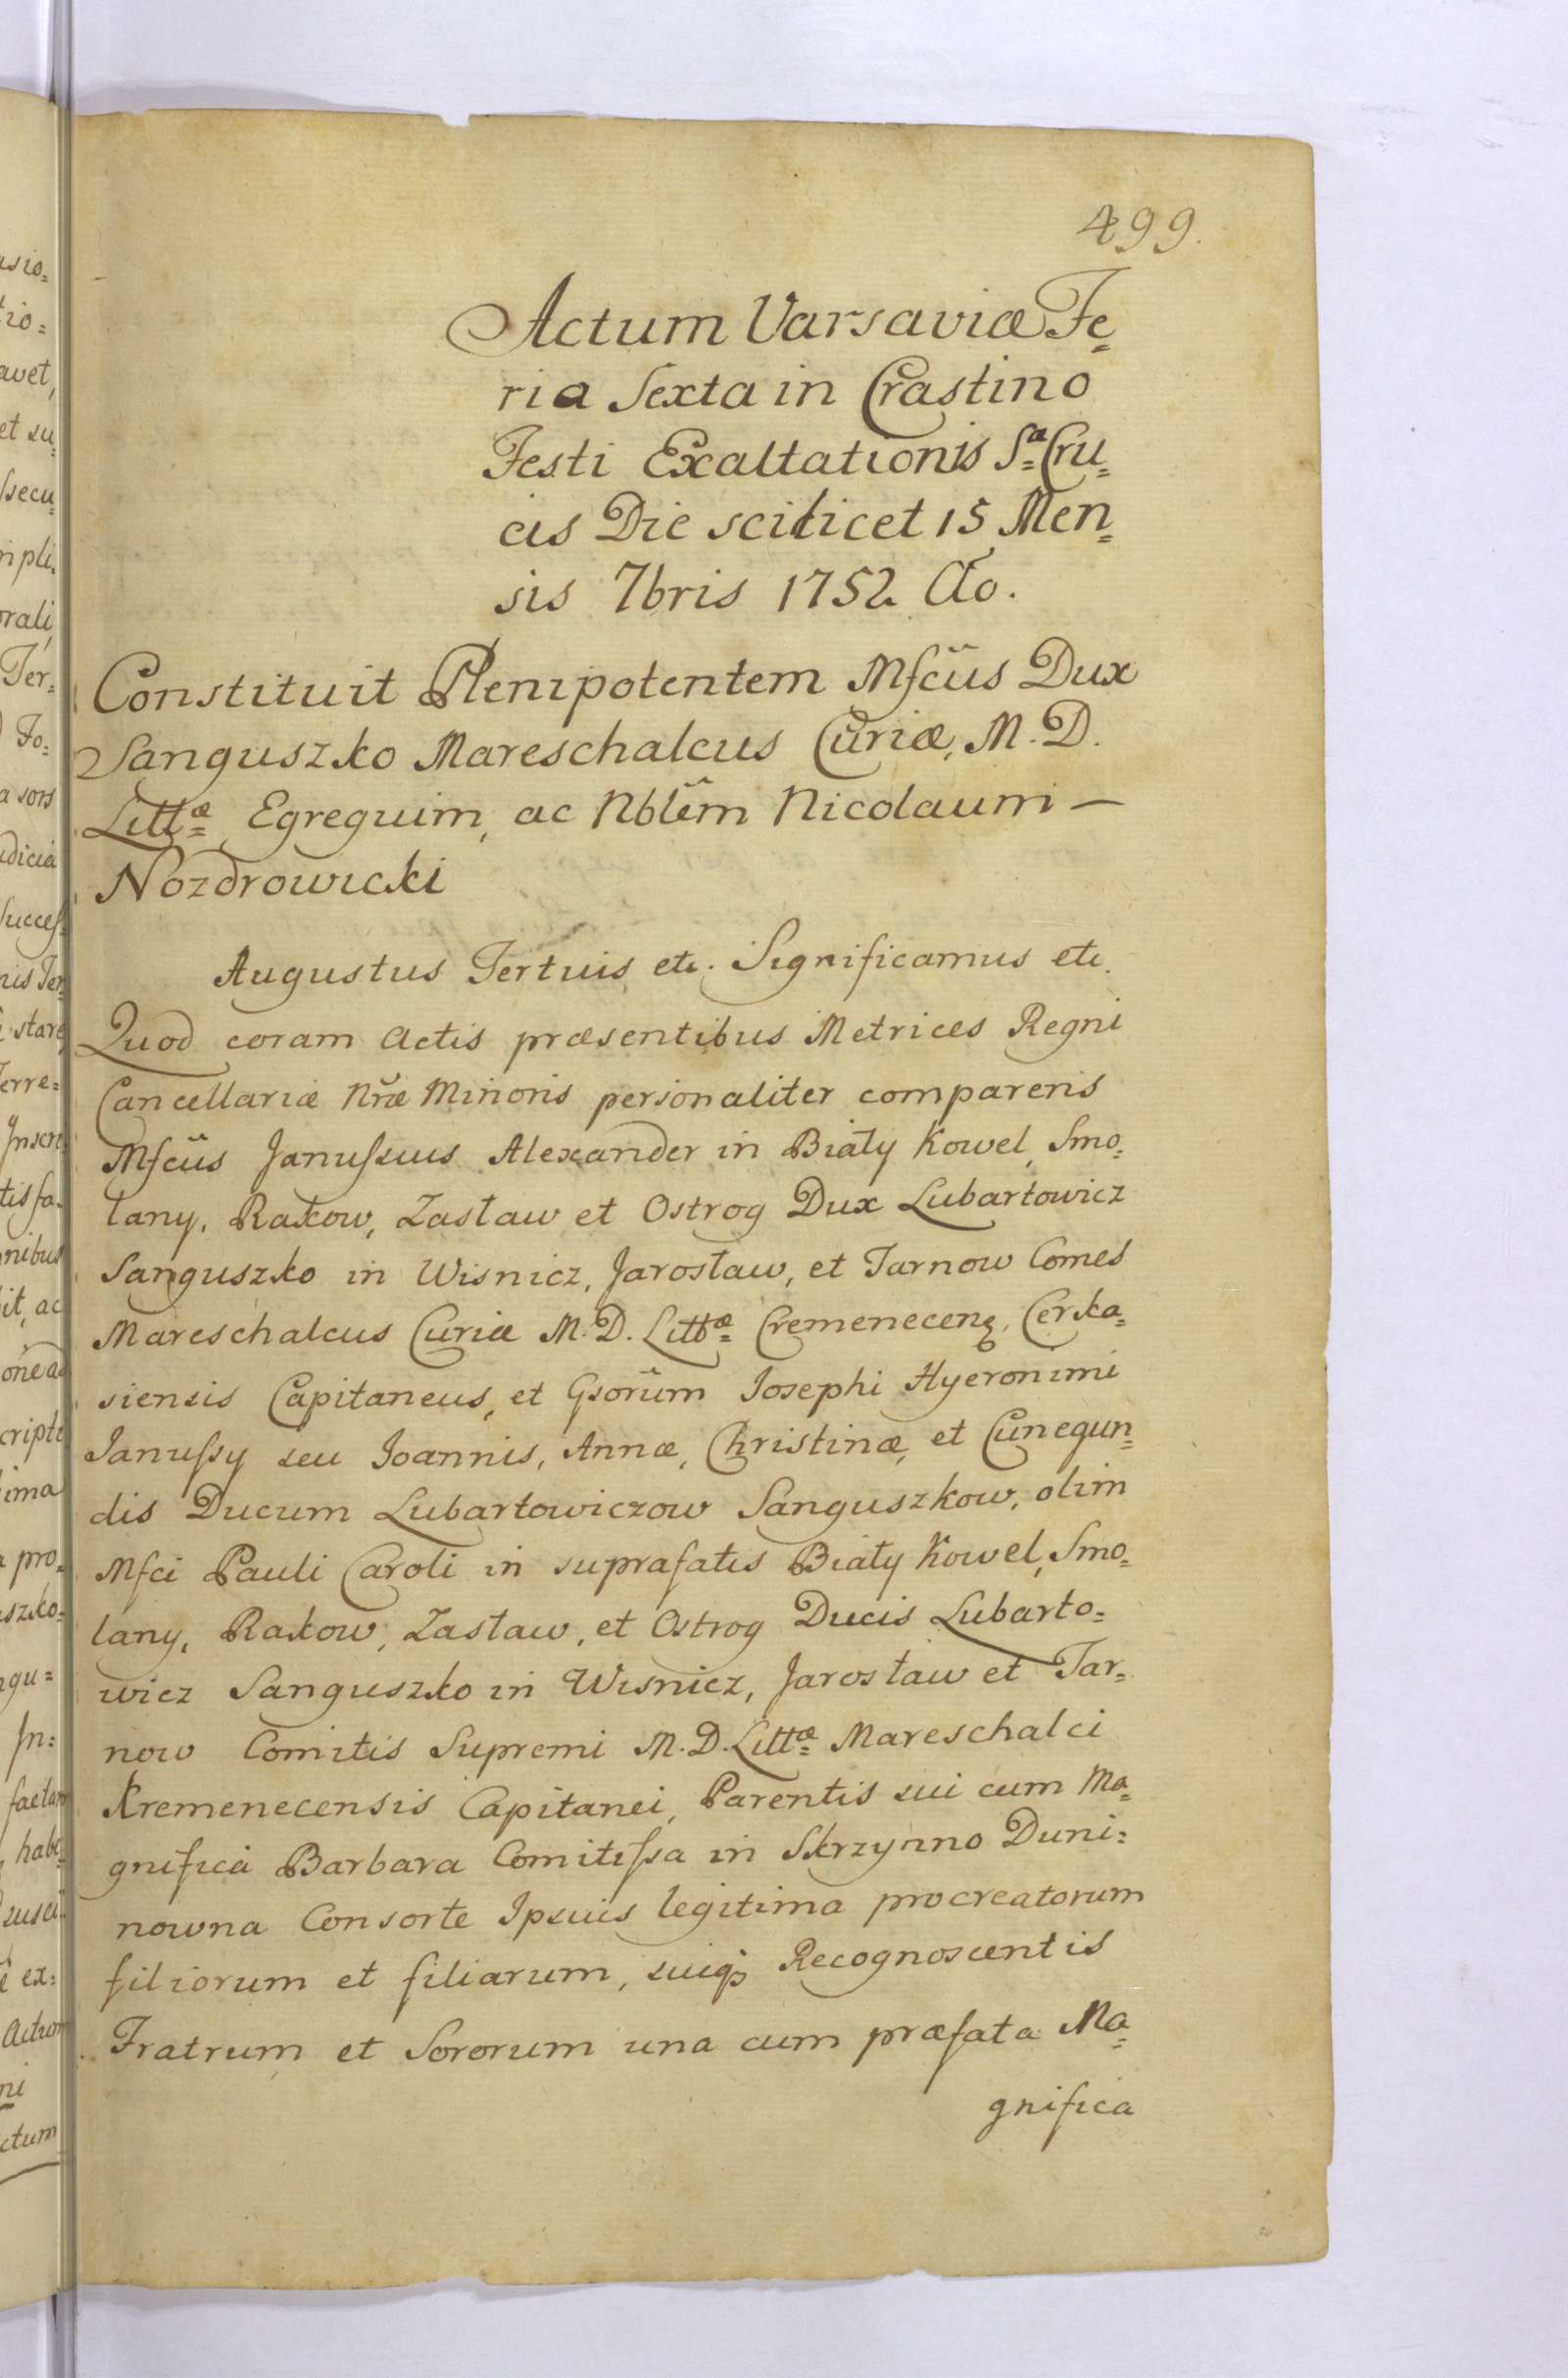 499.
Actum Varsaviæ Fe=
ria Sexta in Crastino
Festi Exaltationis S.ᵃ Cru=
cis Die scilicet 15 Men=
sis 7bris 1752 Ao.
Constituit Plenipotentem Mfcus Dux
Sanguszko Mareschalcus Curiæ, M. D.
Littæ Egreguim, ac Nblem Nicolaum —
Nozdrowicki
Augustus Tertuis etc. Significamus etc.
Quod coram Actis præsentibus Metrices Regni
Cancellariæ Nræ Minoris personaliter comparens
Mfcus Janussius Alexander in Biały Kowel, Smo=
lany, Rakow, Zasław et Ostrog Dux Lubartowicz
Sanguszko in Wisnicz, Jarosław, et Tarnow Comes
Mareschalcus Curiæ M. D. Littæ Cremenecens, Cerka=
siensis Capitaneus, et Gsorum Josephi Hyeronimi
Janussy seu Joannis, Annæ, Christinæ, et Cunegun=
dis Ducum Lubartowiczow Sanguszkow, olim
Mfci Pauli Caroli in suprafatis Biały Kowel, Smo=
lany, Rakow, Zasław, et Ostrog Ducis Lubarto=
wicz Sanguszko in Wisnicz, Jarosław et Tar=
now Comitis Supremi M. D. Littæ Mareschalci
Kremenecensis Capitanei, Parentis sui cum Ma=
gnifica Barbara Comitissa in Skrzynno Duni=
nowna Consorte Ipsuis legitima procreatorum
filiorum et filiarum, suiq; Recognoscentis
Fratrum et Sororum una cum præfata Ma=
gnifica